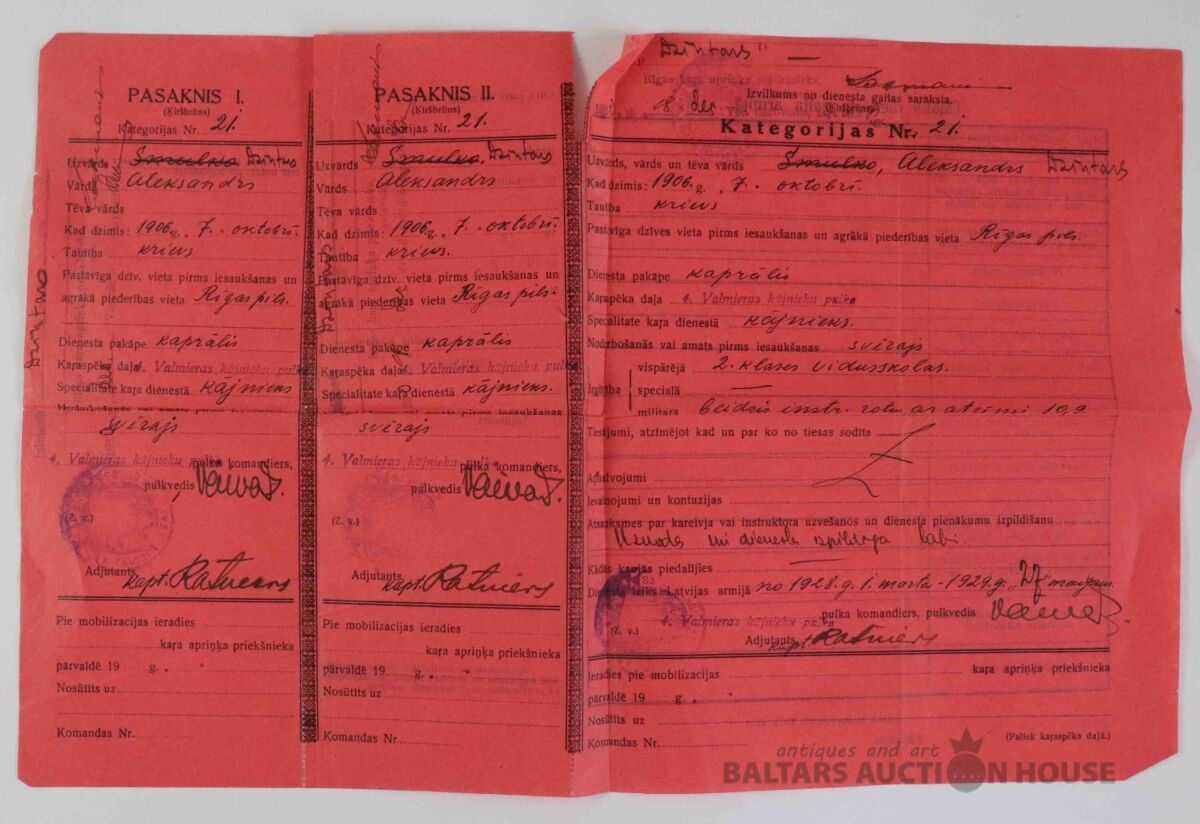 PASAKNIS I.
(Ķiršbrūns)
Kategorijas Nr. 21.
Uzvārds Smulko, Dzintars
Vārds Aleksandrs
Tēva vārds
Kad dzimis: 1906 g. 7. oktobrī.
Tautība krievs
Pastāvīga dzīv. vieta pirms iesaukšanas un
agrākā piederības vieta Rīgas pils.
Dienesta pakāpe kaprālis
Kaŗaspēka daļa 4. Valmieras kājnieku pulks
Specialitate kaŗa dienestā kājnieks
Nodarbošanās vai amats pirms iesaukšanas
svērājs
4. Valmieras kājnieku pulka komandiers,
pulkvedis
(Z. v.)
Adjutants, kapt. Ratnieks
Pie mobilizacijas ieradies
kaŗa apriņķa priekšnieka
pārvaldē 19 g. „ "
Nosūtīts uz
Komandas Nr.
Dzintars
PASAKNIS II.
(Ķiršbrūns)
Kategorijas Nr. 21.
Uzvārds Smulko, Dzintars
Vārds Aleksandrs
Tēva vārds
Kad dzimis: 1906 g. 7. oktobrī.
Tautība krievs.
Pastāvīga dzīv. vieta pirms iesaukšanas un
agrākā piederības vieta Rīgas pils.
Dienesta pakāpe kaprālis
Kaŗaspēka daļa 4. Valmieras kājnieku pulks
Specialitate kaŗa dienestā kājnieks.
svērājs
4. Valmieras kājnieku pulka komandiers,
pulkvedis
(Z. v.)
Adjutants, kapt. Ratnieks
Pie mobilizacijas ieradies
kaŗa apriņķa priekšnieka
pārvaldē 19 g. „ "
Nosūtīts uz
Komandas Nr.
Dzintars" —
Izvilkums no dienesta gaitas saraksta.
(Ķiršbrūns)
8 dec.
Kategorijas Nr. 21.
Uzvārds, vārds un tēva vārds Smulko, Aleksandrs Dzintars
Kad dzimis: 1906. g. 7. oktobrī.
Tautība krievs
Pastāvīga dzīves vieta pirms iesaukšanas un agrākā piederības vieta Rīgas pils.
Dienesta pakāpe kaprālis
Kaŗaspēka daļa 4. Valmieras kājnieku pulks
Specialitate kaŗa dienestā kājnieks.
Nodarbošanās vai amats pirms iesaukšanas svērājs
Izglītība
vispārējā 2. klases vidusskolas.
speciālā —
militārā beidzis instr. rotu ar atzīmi 10,9
Tiesājumi, atzīmējot kad un par ko no tiesas sodīts
Apbalvojumi
Ievainojumi un kontuzijas
Atsauksmes par kareivja vai instruktora uzvešanos un dienesta pienākumu izpildīšanu
Uzvedās un dienestu izpildīja labi.
Kādās kaujās piedalījies —
Dienesta laiks Latvijas armijā no 1928. g. 1. marta - 1929. g. „27 maijam.
pulka komandiers, pulkvedis
4. Valmieras kājnieku pulka
(Z. v.)
Adjutants, kapt. Ratnieks
Ieradies pie mobilizacijas kaŗa apriņķa priekšnieka
pārvaldē 19 g. „ "
Nosūtīts uz
Komandas Nr. (Paliek kaŗaspēka daļā.)
antiques and art
BALTARS AUCTION HOUSE